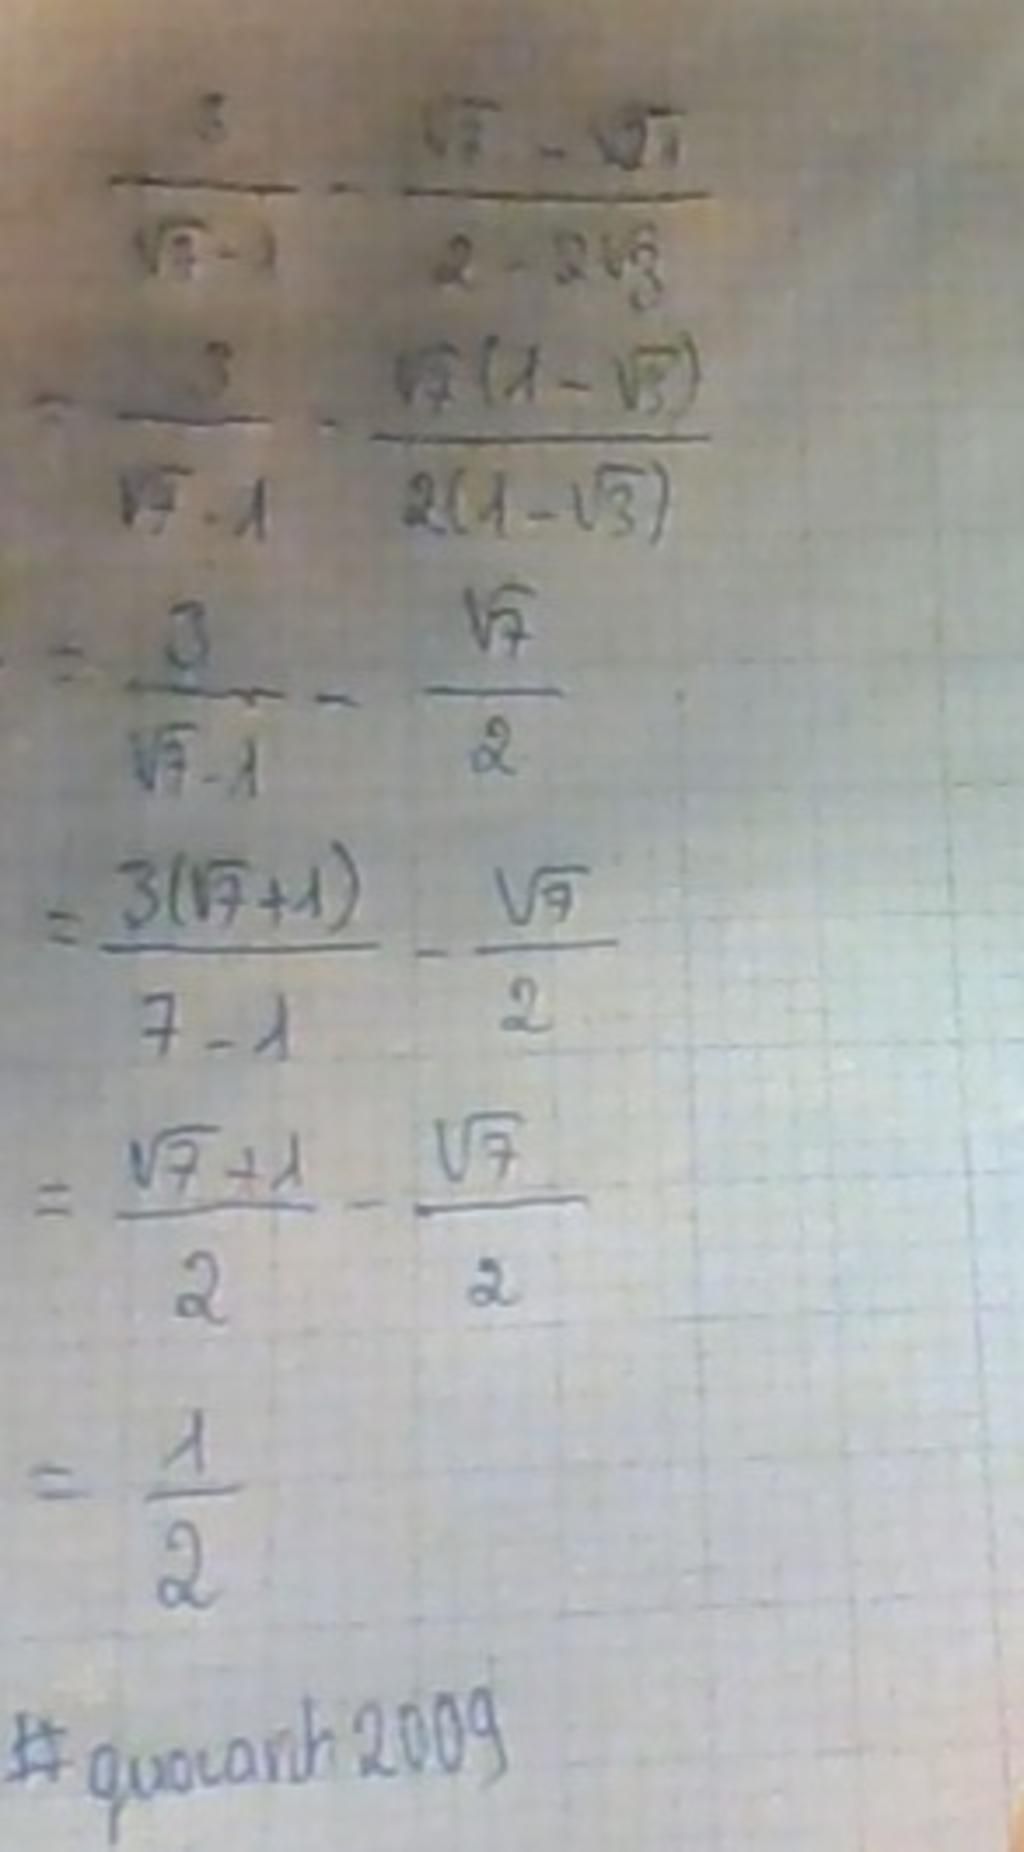 3/(√7 - 1) - (√7 - √21)/(2 - 2√3)
= 3/(√7 - 1) - √7(1 - √3)/2(1 - √3)
= 3/(√7 - 1) - √7/2
= 3(√7 + 1)/(7 - 1) - √7/2
= (√7 + 1)/2 - √7/2
= 1/2
#quocanh2009